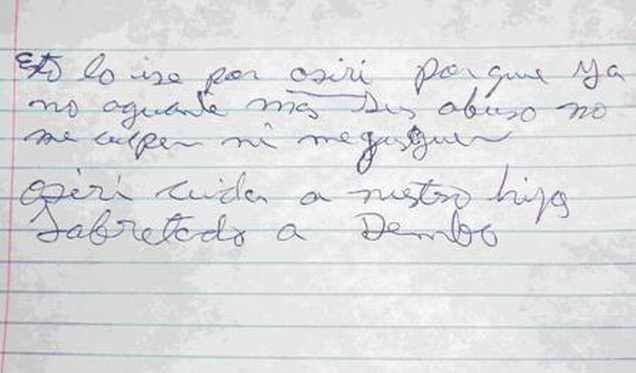 Esto lo ise por osiri porque ya
no aguante mas sus abuso no
me culpen ni me jusguen
osiri cuida a nustro hijo
Sabretodo a Dembo